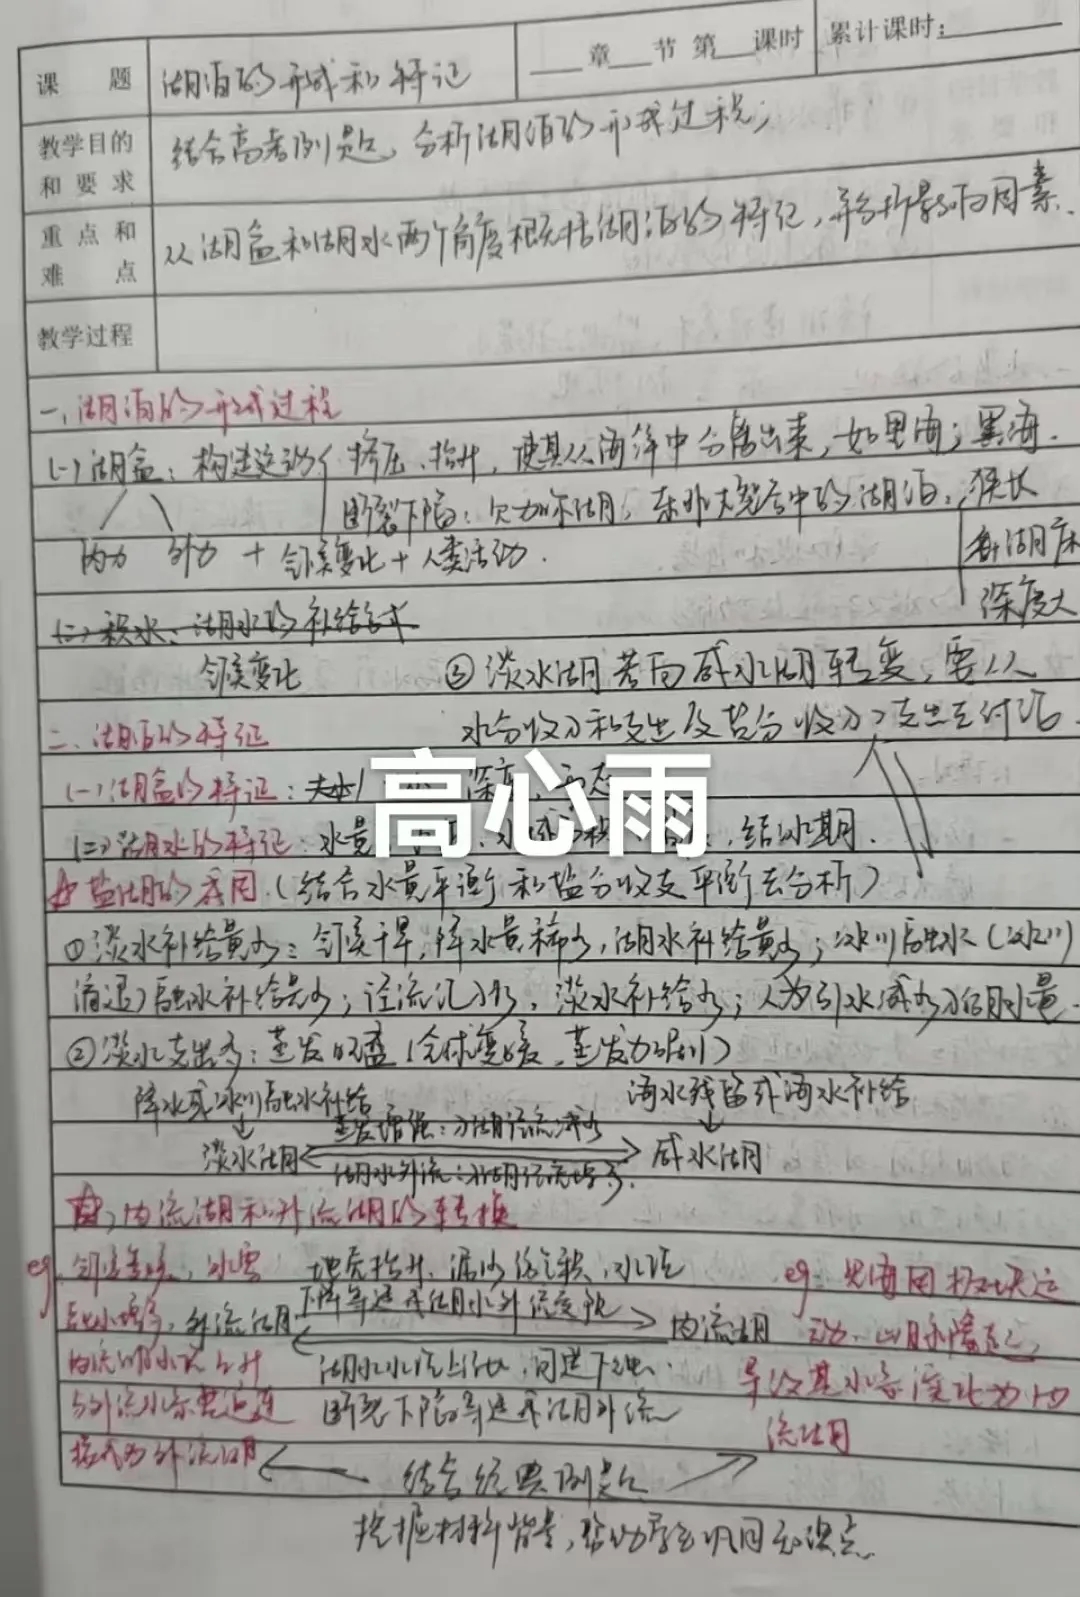 课 题 湖泊的形成和特征 ___章___节第___课时 累计课时:
教学目的和要求 结合高考例题,分析湖泊的形成过程;
重点和难点 从湖盆和湖水两个角度概括湖泊的特征,并分析影响因素.
教学过程
一、湖泊的形成过程
(一)湖盆:构造运动 挤压、抬升,使其从海洋中分离出来,如里海;黑海.
断裂下陷:贝加尔湖;东非大裂谷中的湖泊. 狭长
内力 外力 + 气候变化+人类活动. 湖床
深度大
(二)积水:湖水的补给方式
气候变化 ③淡水湖若向咸水湖转变,要从
二、湖泊的特征 水分收入和支出及盐分收入、支出去讨论
(一)湖盆的特征: 深度,
高心雨
(二)湖水的特征:水量 结冰期.
盐湖的成因.(结合水量平衡和盐分收支平衡去分析)
①淡水补给量少:气候干旱,降水量稀少,湖水补给量少;冰川融水(冰川
消退)融水补给少;径流汇入少,淡水补给少;人为引水减少入湖水量.
②淡水支出多:蒸发旺盛(全球变暖,蒸发力强)
降水或冰川融水补给 海水残留或海水补给
蒸发增强;入湖径流减少
淡水湖 咸水湖
湖水外流;入湖径流增多.
内流湖和外流湖的转换
eg. 气候变暖,冰雪 地壳抬升、泥沙淤积、水位 eg:
融水增多, 外流湖 下降等造成湖水外流受阻 内流湖 运动,山脉隆起,
内流湖水位上升 湖水水位上升, 导致其水系演化为内
与外流水系连通 断裂下陷等造成湖外流 流湖
转化为外流湖
结合经典例题
挖掘材料背景,帮助学生巩固知识点.